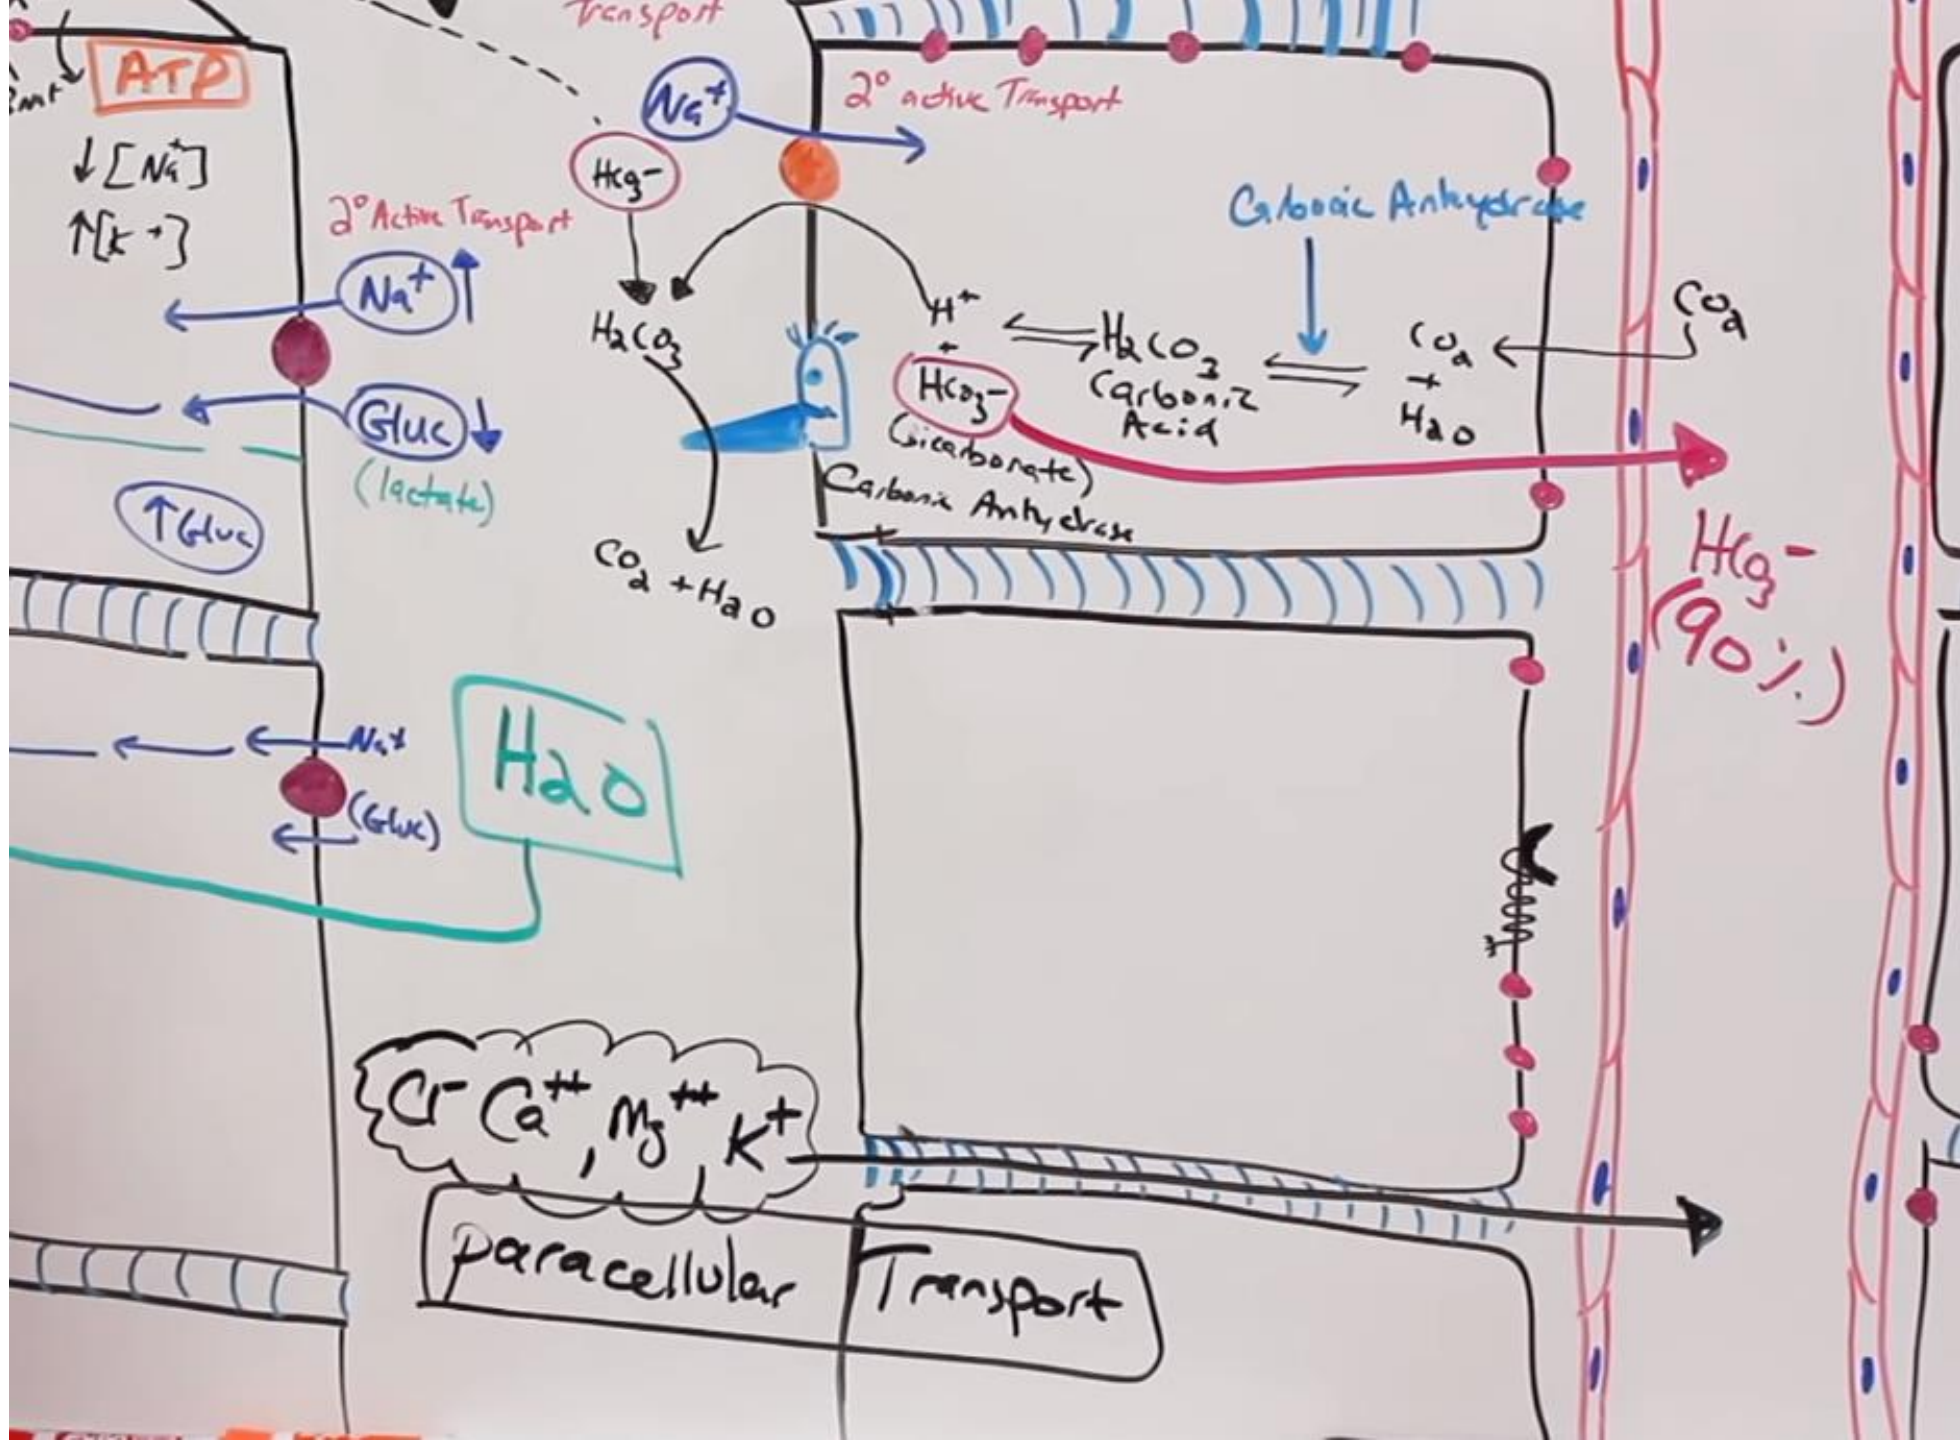 Transport
ATP
↓ [Na⁺]
↑[K⁺]
2° Active Transport
Na⁺ ↑
Gluc ↓
(lactate)
↑Gluc
Na⁺
(Gluc)
H2O
Na⁺
2° active Transport
HCO3⁻
H2CO3
CO2 + H2O
Carbonic Anhydrase
H⁺
+
HCO3⁻
(Bicarbonate)
Carbonic Anhydrase
H2CO3
Carbonic
Acid
CO2
+
H2O
CO2
HCO3⁻
(90%)
Cl⁻ Ca⁺⁺, Mg⁺⁺, K⁺
paracellular Transport